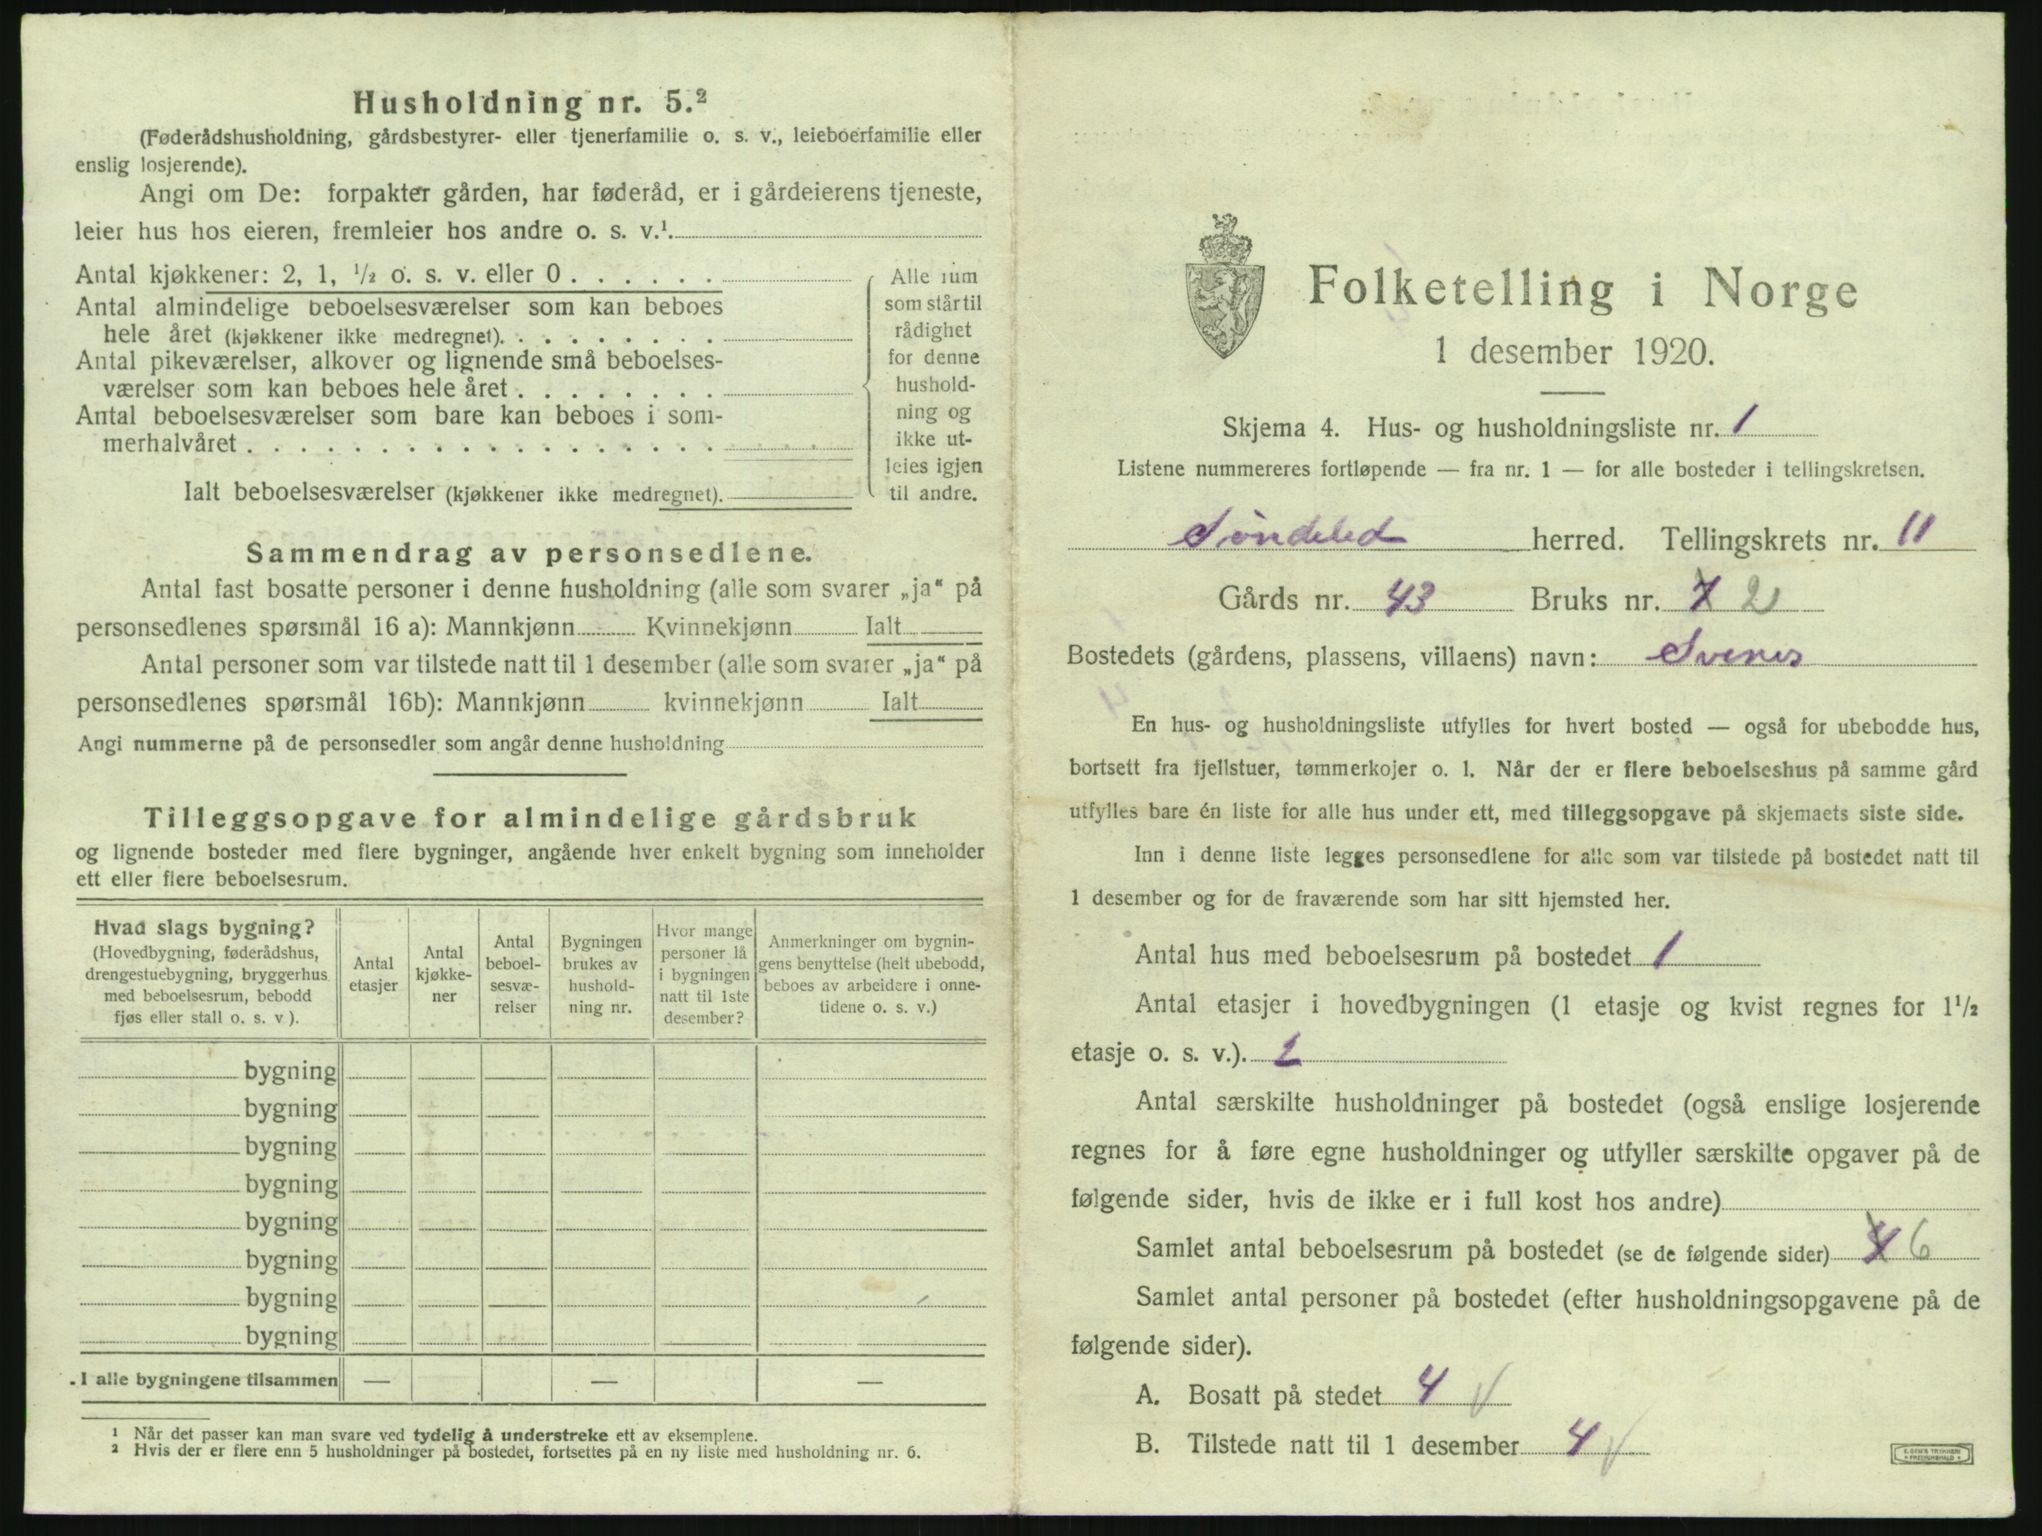 Husholdning nr. 5.²
(Føderådshusholdning, gårdsbestyrer- eller tjenerfamilie o. s. v., leieboerfamilie eller
enslig losjerende).
Angi om De: forpakter gården, har føderåd, er i gårdeierens tjeneste,
leier hus hos eieren, fremleier hos andre o. s. v.¹
Antal kjøkkener: 2, 1, ½ o. s. v. eller 0 . . . . . .
Antal almindelige beboelsesværelser som kan beboes
hele året (kjøkkener ikke medregnet). . . . . . . . .
Antal pikeværelser, alkover og lignende små beboelses-
værelser som kan beboes hele året . . . . . . . .
Antal beboelsesværelser som bare kan beboes i som-
merhalvåret . . . . . . . . . . . . . . . . . .
Ialt beboelsesværelser (kjøkkener ikke medregnet).
Alle rum
som står til
rådighet
for denne
hushold-
ning og
ikke ut-
leies igjen
til andre.
Sammendrag av personsedlene.
Antal fast bosatte personer i denne husholdning (alle som svarer „ja“ på
personsedlenes spørsmål 16 a): Mannkjønn Kvinnekjønn Ialt
Antal personer som var tilstede natt til 1 desember (alle som svarer „ja“ på
personsedlenes spørsmål 16b): Mannkjønn kvinnekjønn Ialt
Angi nummerne på de personsedler som angår denne husholdning
Tilleggsopgave for almindelige gårdsbruk
og lignende bosteder med flere bygninger, angående hver enkelt bygning som inneholder
ett eller flere beboelsesrum.
Hvad slags bygning?
(Hovedbygning, føderådshus,
drengestuebygning, bryggerhus
med beboelsesrum, bebodd
fjøs eller stall o. s. v ).
Antal
etasjer
Antal
kjøkke-
ner
Antal
beboel-
sesvæ-
relser
Bygningen
brukes av
hushold-
ning nr.
Hvor mange
personer lå
i bygningen
natt til 1ste
desember?
Anmerkninger om bygnin-
gens benyttelse (helt ubebodd,
beboes av arbeidere i onne-
tidene o. s. v.)
bygning
bygning
bygning
bygning
bygning
bygning
bygning
bygning
I alle bygningene tilsammen — — —
¹ Når det passer kan man svare ved tydelig å understreke ett av eksemplene.
² Hvis der er flere enn 5 husholdninger på bostedet, fortsettes på en ny liste med husholdning nr. 6.
Folketelling i Norge
1 desember 1920.
Skjema 4. Hus- og husholdningsliste nr. 1
Listene nummereres fortløpende — fra nr. 1 — for alle bosteder i tellingskretsen.
Søndeled herred. Tellingskrets nr. 11
Gårds nr. 43 Bruks nr. 2
Bostedets (gårdens, plassens, villaens) navn: Svenes
En hus- og husholdningsliste utfylles for hvert bosted — også for ubebodde hus,
bortsett fra fjellstuer, tømmerkojer o. l. Når der er flere beboelseshus på samme gård
utfylles bare én liste for alle hus under ett, med tilleggsopgave på skjemaets siste side.
Inn i denne liste legges personsedlene for alle som var tilstede på bostedet natt til
1 desember og for de fraværende som har sitt hjemsted her.
Antal hus med beboelsesrum på bostedet 1
Antal etasjer i hovedbygningen (1 etasje og kvist regnes for 1½
etasje o. s. v.).
Antal særskilte husholdninger på bostedet (også enslige losjerende
regnes for å føre egne husholdninger og utfyller særskilte opgaver på de
følgende sider, hvis de ikke er i full kost hos andre)
Samlet antal beboelsesrum på bostedet (se de følgende sider) 6
Samlet antal personer på bostedet (efter husholdningsopgavene på de
følgende sider).
A. Bosatt på stedet 4 √
B. Tilstede natt til 1 desember 4 √